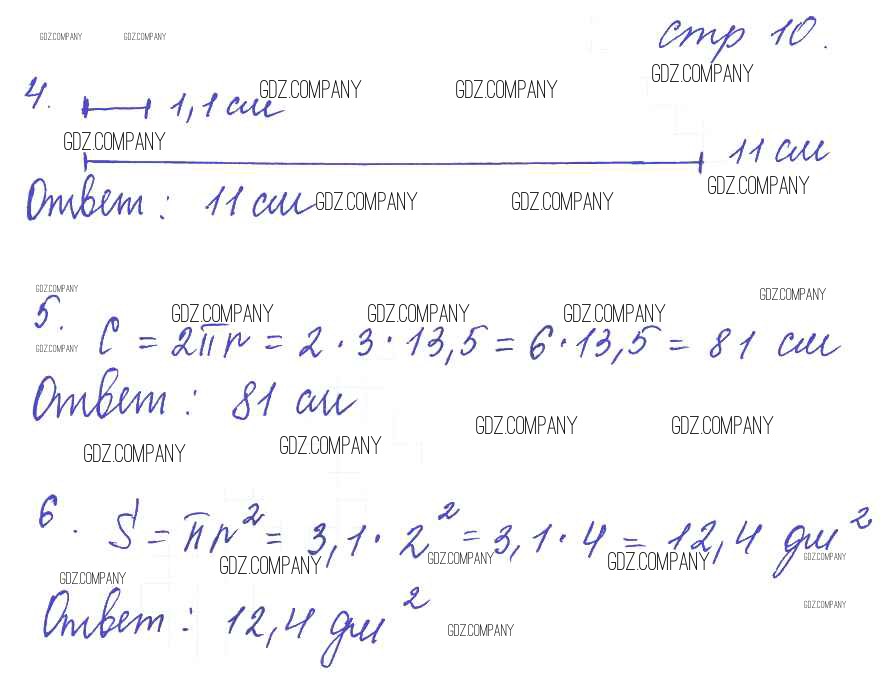 GDZ.COMPANY GDZ.COMPANY стр 10.
GDZ.COMPANY GDZ.COMPANY GDZ.COMPANY
4. 1,1 см
GDZ.COMPANY
11 см
Ответ: 11 см GDZ.COMPANY GDZ.COMPANY GDZ.COMPANY
GDZ.COMPANY GDZ.COMPANY
5. GDZ.COMPANY GDZ.COMPANY GDZ.COMPANY
GDZ.COMPANY C = 2πr = 2 · 3 · 13,5 = 6 · 13,5 = 81 см
Ответ: 81 см
GDZ.COMPANY GDZ.COMPANY GDZ.COMPANY GDZ.COMPANY
6. S = πr² = 3,1 · 2² = 3,1 · 4 = 12,4 дм²
GDZ.COMPANY GDZ.COMPANY GDZ.COMPANY GDZ.COMPANY
GDZ.COMPANY
Ответ: 12,4 дм²
GDZ.COMPANY GDZ.COMPANY